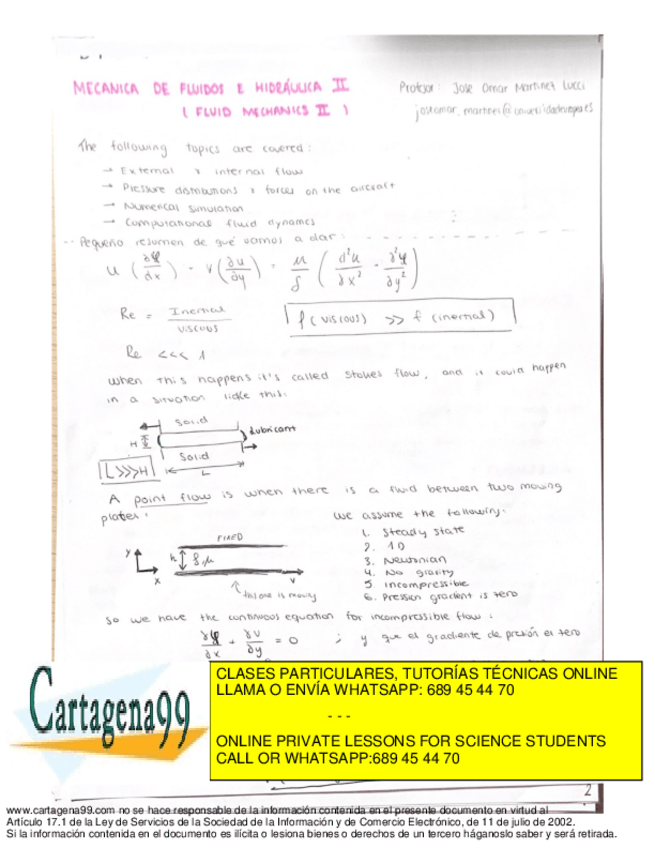 MECANICA DE FLUIDOS E HIDRÁULICA II
( FLUID MECHANICS II )
Profesor: Jose Omar Martinez Lucci
The following topics are covered:
→ External y internal flow
→ Pressure distributions y forces on the aircraft
→ Numerical simulation
→ Computational fluid dynamics
Pequeño resumen de qué vamos a dar:
Re = Inertial / viscous
f (viscous) >> f (inertial)
Re <<< 1
When this happens it's called Stokes flow, and it could happen
in a situation like this:
solid
Lubricant
H
solid
L>>>H
L
A point flow is when there is a fluid between two moving
plates:
we assume the following:
1. Steady state
2. 1D
3. Newtonian
4. No gravity
5. Incompressible
6. Pression gradient is zero
FIXED
y
h
x
v
this one is moving
So we have the continuous equation for incompressible flow:
= 0 ; y que el gradiente de presión es zero
Cartagena99
CLASES PARTICULARES, TUTORÍAS TÉCNICAS ONLINE
LLAMA O ENVÍA WHATSAPP: 689 45 44 70
- - -
ONLINE PRIVATE LESSONS FOR SCIENCE STUDENTS
CALL OR WHATSAPP:689 45 44 70
2
www.cartagena99.com no se hace responsable de la información contenida en el presente documento en virtud al
Artículo 17.1 de la Ley de Servicios de la Sociedad de la Información y de Comercio Electrónico, de 11 de julio de 2002.
Si la información contenida en el documento es ilícita o lesiona bienes o derechos de un tercero háganoslo saber y será retirada.